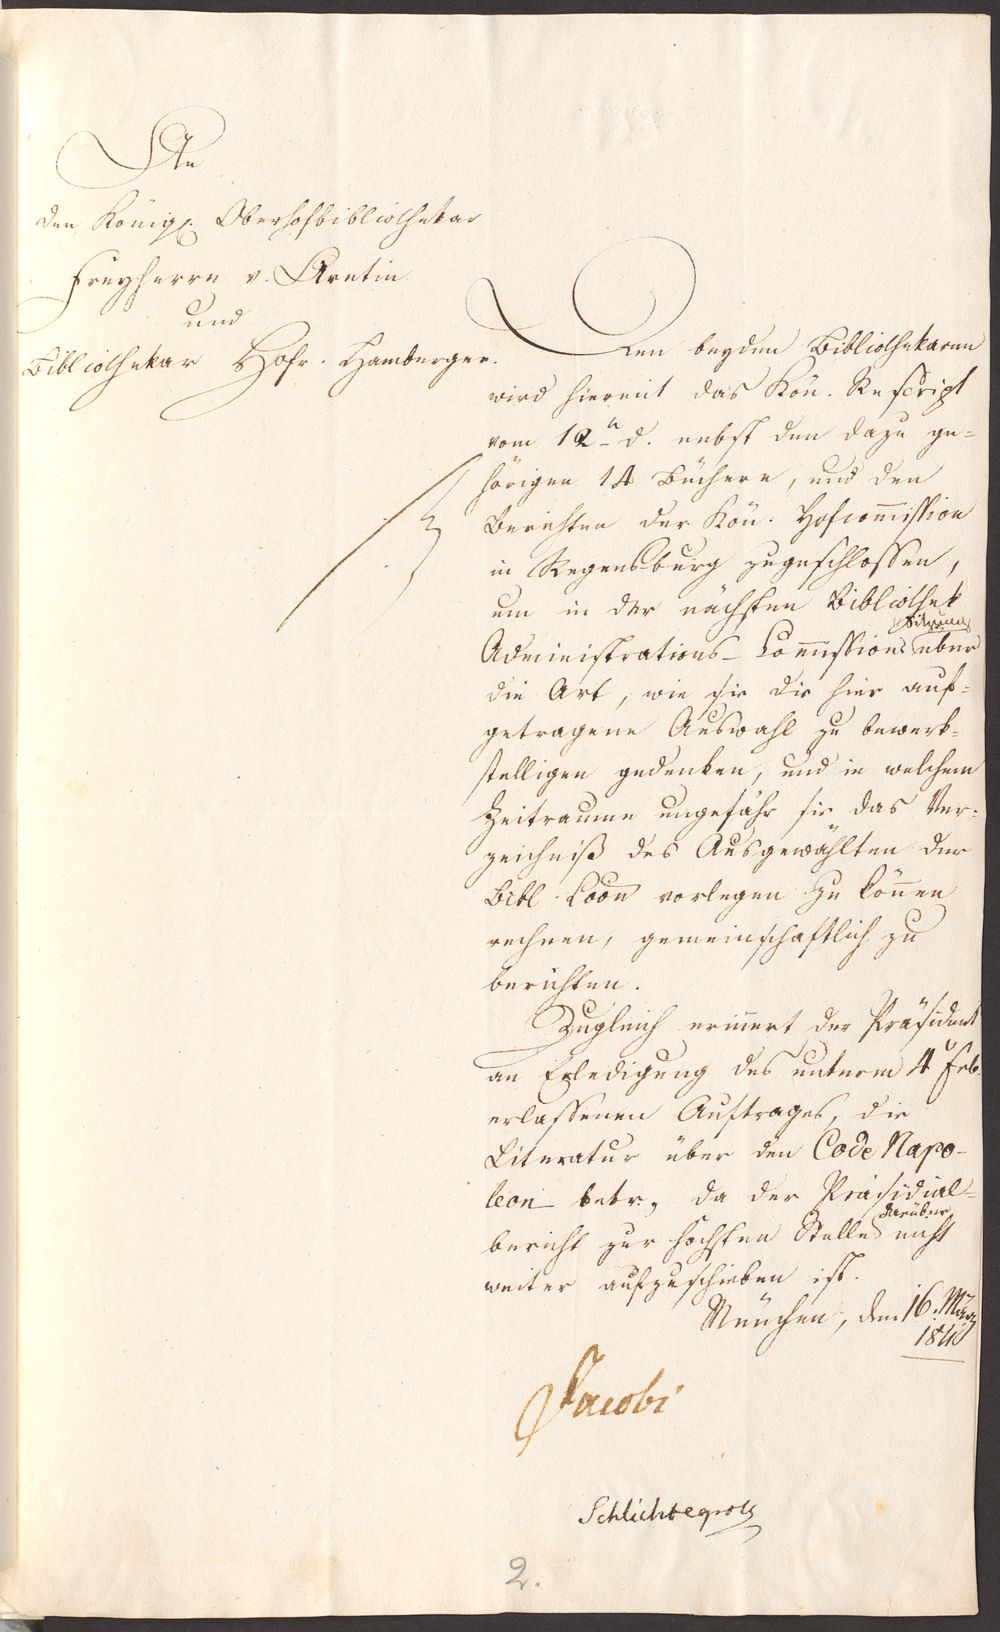 An
den Königl. Oberhofbibliothekar
Freyherrn v. Aretin
und
Bibliothekar Hofr. Hamberger.
Den beyden Bibliothekaren
wird hiermit das Kön. Rescript
vom 12n d. nebst den dazu ge=
hörigen 14 Büchern, und den
Berichten der Kön. Hofcom̅ission
in Regensburg zugeschlossen,
um in der nächsten Bibliothek
Administrations-Com̅issions Sitzung über
die Art, wie sie die hier auf=
getragene Auswahl zu bewerk=
stelligen gedenken, und in welchem
Zeitraume ungefähr sie das Ver=
zeichniß des Ausgewählten der
Bibl. Coon vorlegen zu kön̅en
rechnen, gemeinschaftlich zu
berichten.
Zugleich erin̅ert der Präsident
an Erledigung des unterm 4 Feb.
erlassenen Auftrages, die
Literatur über den Code Napo-
leon betr., da der Präsidial=
bericht zur höchsten Stelle darüber nicht
weiter aufzuschieben ist.
München, den 16. März
Jacobi
Schlichtegroll
2.